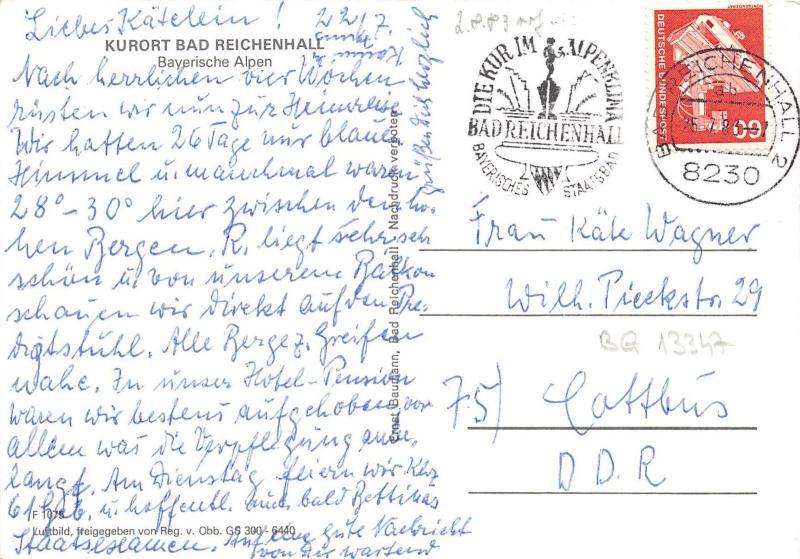 Liebes Kätelein! 22/7.
KURORT BAD REICHENHALL
Bayerische Alpen
Nach herrlichen vier Wochen
rüsten wir nun zur Heimreise
Wir hatten 26 Tage nur blauen
Himmel u. manchmal waren
28°-30° hier zwischen den ho-
hen Bergen. R. liegt sehr, sehr
schön u. von unserem Balkon
schauen wir direkt auf den Pre-
digtstühl. Alle Berge z. Greifen
nahe. In unser Hotel-Pension
waren wir bestens aufgehoben, vor
allem was die Verpflegung anbe-
langt. Am Dienstag feiern wir
61. Geb. u. hoffentl. auch bald Bettinas
Staatsexamen. Auf eine gute Nachricht
von dir wartend
grüßen Dich herzlich
F 1075
Luftbild, freigegeben von Reg. v. Obb. GS 300 - 6440
Ernst Baumann, Bad Reichenhall - Nachdruck verboten
2.8.83
DIE KUR IM ALPENKLIMA
BAD REICHENHALL
BAYERISCHES STAATSBAD
DEUTSCHE BUNDESPOST
60
BAD REICHENHALL 2
8230
Frau Käte Wagner
Wilh. Pieckstr. 29
BG 13347
75) Cottbus
DDR